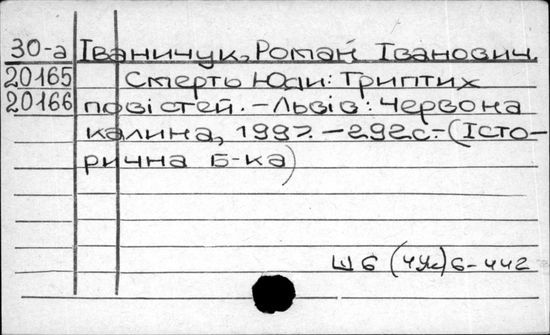 30-а Іваничук, Роман Іванович.
20165 Смерть Юди: Триптих
20166 повістей. – Львів: Червона
калина, 1997. – 292с. – (Істо-
рична Б-ка)
Ш6 (4Ук)6-442